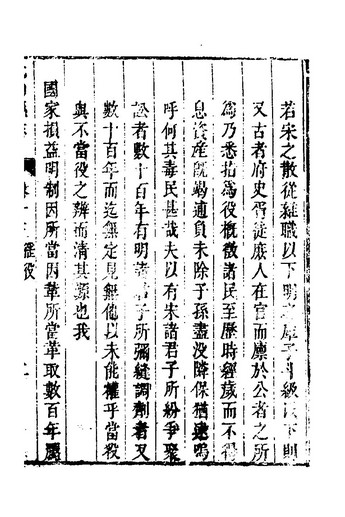 若宋之散從雜職以下明之庫子斗級以下則
又古者府史胥徒庶人在官而廩於公者之所
為乃悉括為役概徵諸民至歷時經歲而不得
息資產既竭逋負未除子孫盡没隣保猶逮嗚
呼何其毒民甚哉夫以有宋諸君子所紛爭聚
訟者數十百年有明諸君子所彌縫調劑者又
數十百年而迄無定見無他以未能權乎當役
與不當役之辨而清其源也我
國家損益明制因所當因革所當革取數百年